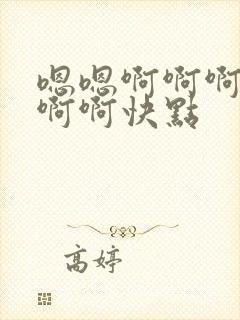 嗯嗯啊啊啊
啊啊快點
高婷